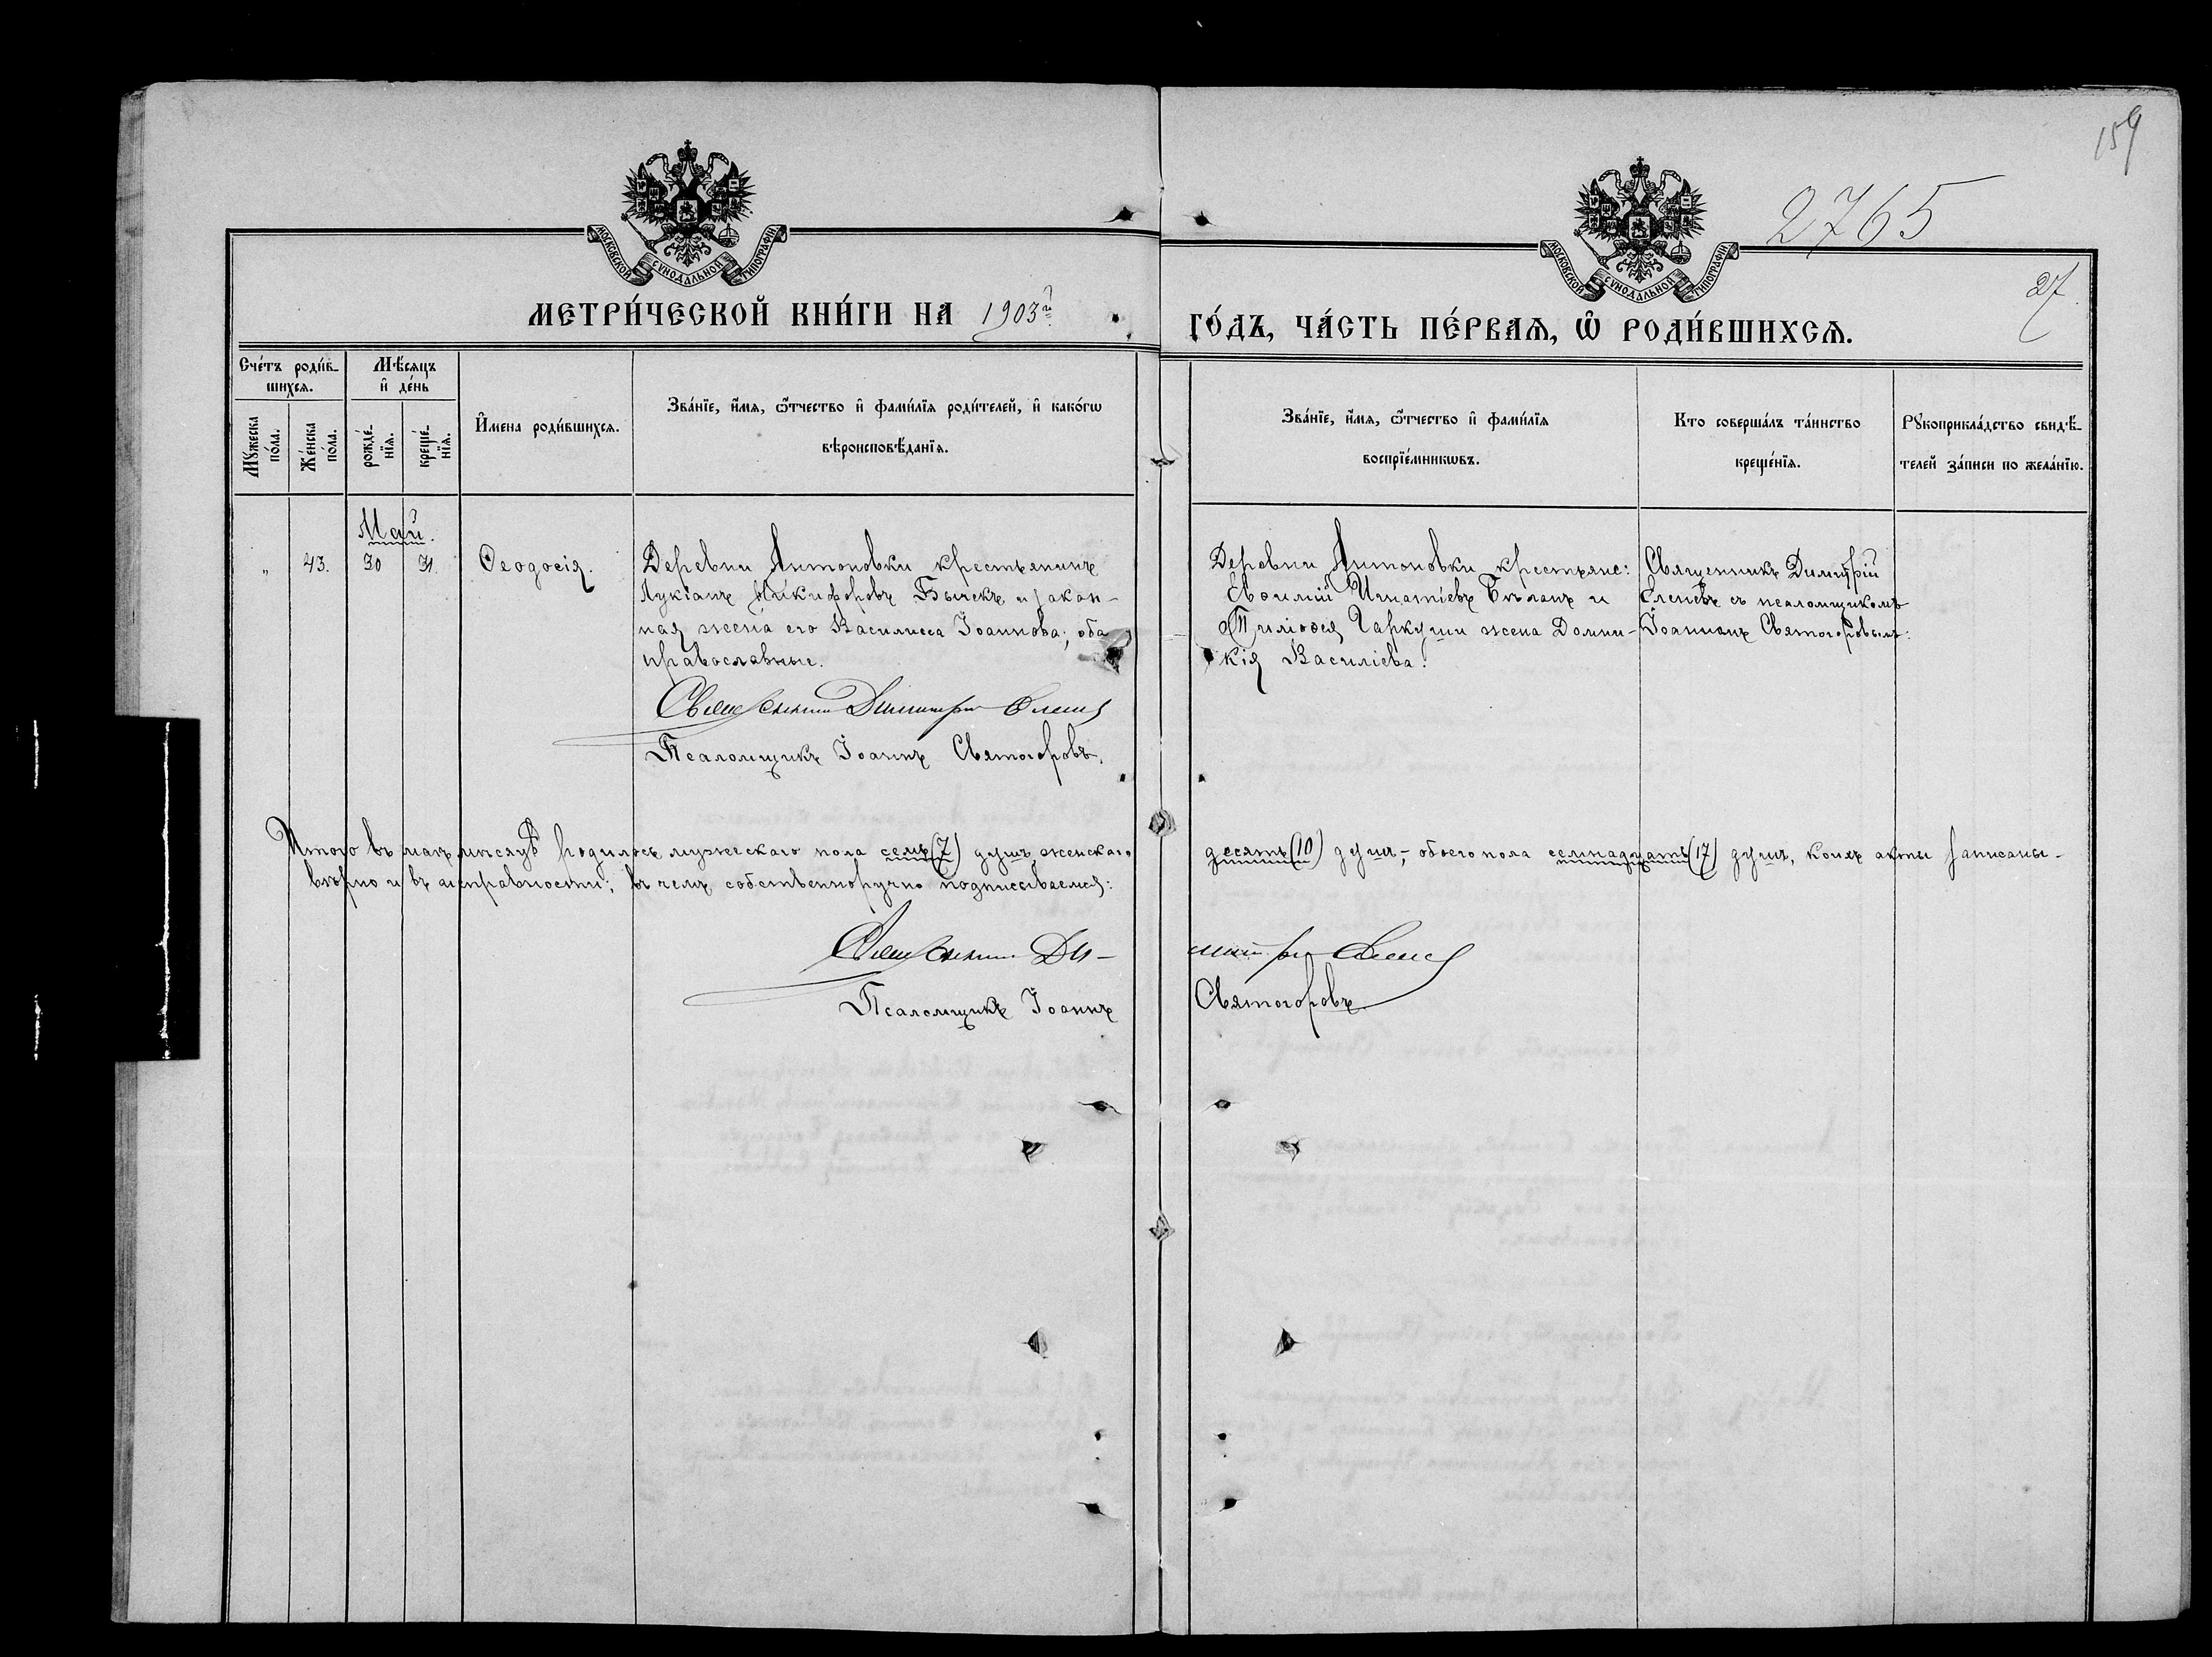 159
2765
27.
МОСКОВСКОЙ СѴНОДАЛЬНОЙ ТИПОГРАФІИ
МОСКОВСКОЙ СѴНОДАЛЬНОЙ ТИПОГРАФІИ
МЕТРИ́ЧЕСКОЙ КНИ́ГИ НА 1903й
ГО́ДЪ, ЧА́СТЬ ПЕ́РВАѦ, Ѡ҆ РОДИ́ВШИХСѦ.
Сче́тъ роди́в-
шихсѧ.
Мꙋ́жеска по́ла.
Же́нска по́ла.
Мѣ́сѧцъ
и҆ де́нь
рожде́-
нїѧ.
креще́-
нїѧ.
И҆мена роди́вшихсѧ.
Зва́нїе, и҆́мѧ, ѻ҆́тчество и҆ фами́лїѧ роди́телей, и҆ како́гѡ
вѣроисповѣ́данїѧ.
Зва́нїе, и҆́мѧ, ѻ҆́тчество и҆ фами́лїѧ
воспрїе́мникѡвъ.
Кто соверша́лъ та́инство
креще́нїѧ.
Рꙋкоприкла́дство свидѣ́-
телей за́писи по жела́нїю.
Май.
„ 43. 30 31. Ѳеодосія.
Деревни Антоновки крестьянинъ
Лукіанъ Никифоровъ Бычекъ и закон-
ная жена его Василисса Іоаннова; оба
православные.
Священникъ Димитрій
Псаломщикъ Іоаннъ Святогоровъ.
Деревни Антоновки крестьяне:
Евѳимій Игнатіевъ Бѣланъ и
Гаркуши жена Домни-
кія Василіева.
Священникъ Димитрій
съ псаломщикомъ
Іоанномъ Святогоровымъ.
Итого въ маѣ мѣсяцѣ родилось мужескаго пола семь (7) душъ, женскаго
десять (10) душъ, обоего пола семнадцать (17) душъ, коихъ акты записаны
вѣрно и въ исправности; въ чемъ собственноручно подписываемся:
Священникъ Ди-
митрій
Псаломщикъ Іоаннъ
Святогоровъ